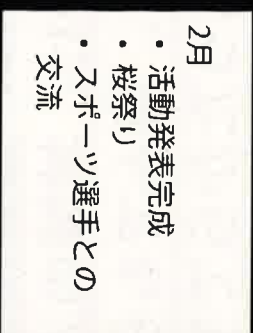 2月
・活動発表完成
・桜祭り
・スポーツ選手との
交流